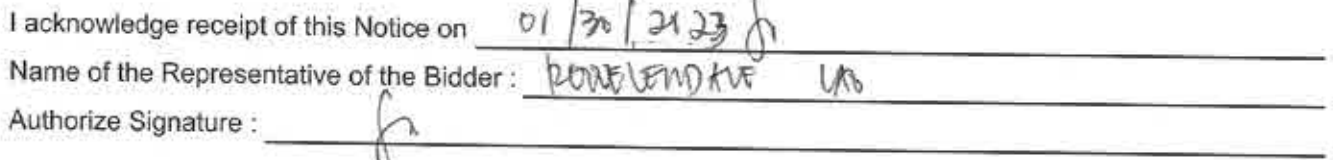 I acknowledge receipt of this Notice on 01/30/2123
Name of the Representative of the Bidder :
Authorize Signature :